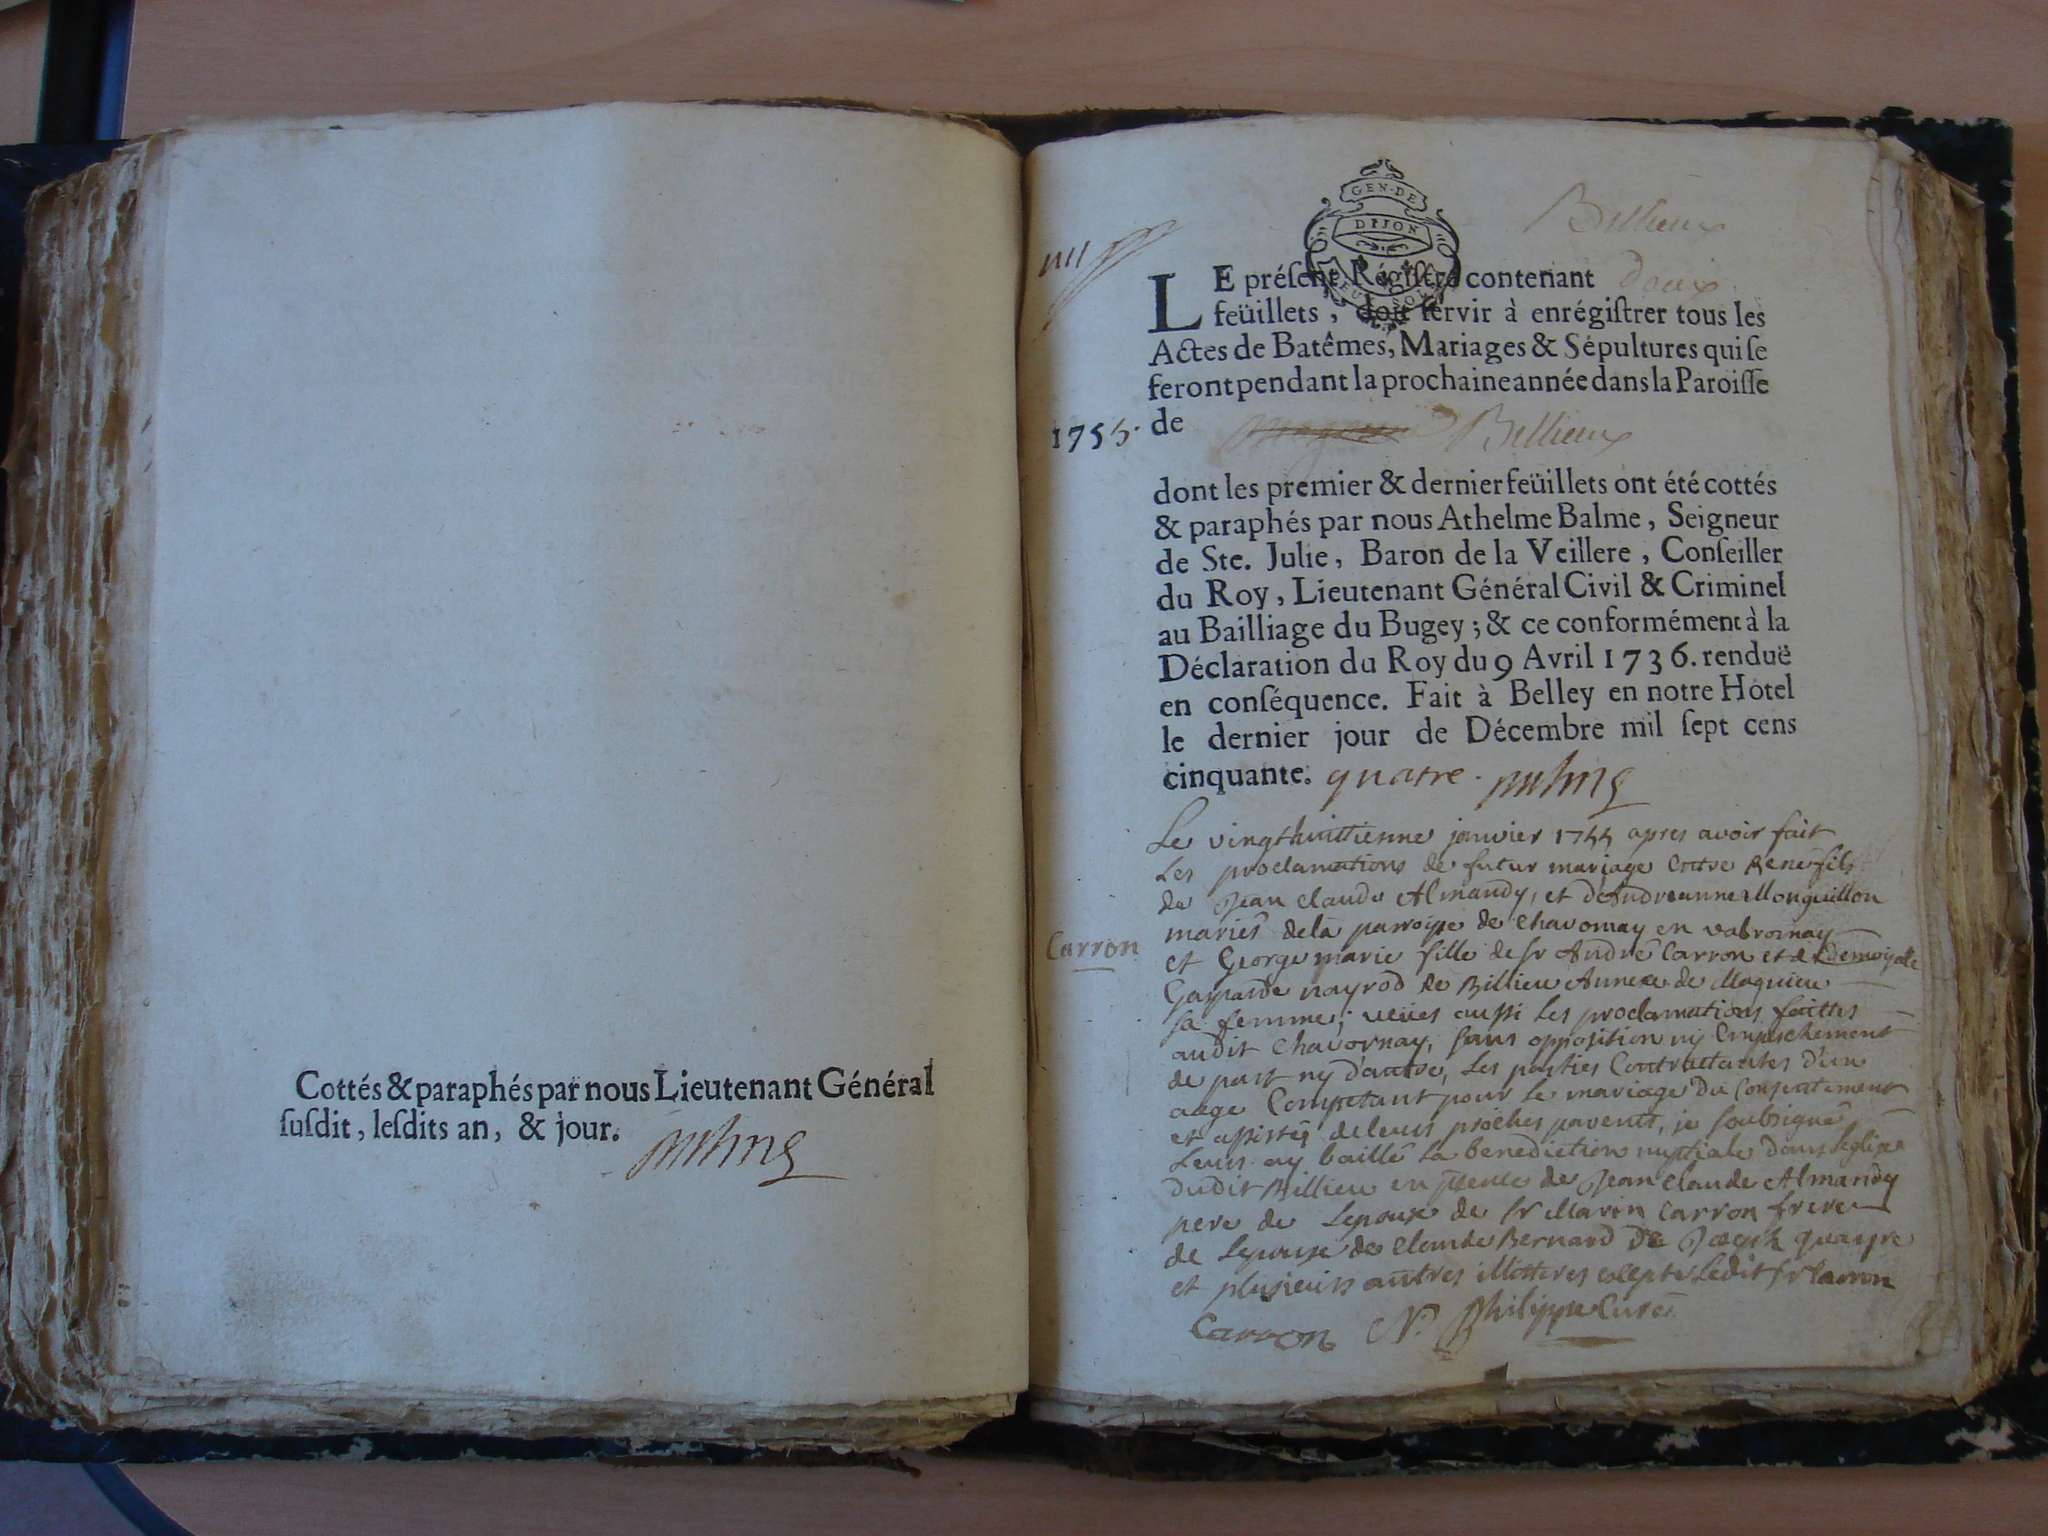 Cottés & paraphés par nous Lieutenant Général
ſuſdit, leſdits an, & jour.
GEN·DE
DIJON
Billieux
LE préſent Régiſtre contenant deux
feüillets, doit ſervir à enrégiſtrer tous les
Actes de Batêmes, Mariages & Sépultures qui ſe
feront pendant la prochaine année dans la Paroiſſe
1755. de Billieux
dont les premier & dernier feüillets ont été cottés
& paraphés par nous Athelme Balme, Seigneur
de Ste. Julie, Baron de la Veillere, Conſeiller
du Roy, Lieutenant Général Civil & Criminel
au Bailliage du Bugey; & ce conformément à la
Déclaration du Roy du 9 Avril 1736. renduë
en conſéquence. Fait à Belley en notre Hôtel
le dernier jour de Décembre mil ſept cens
cinquante. quatre.
Le vingthuittienne janvier 1755 apres avoir fait
Les proclamations de futur mariage entre Rene fils
de Jean claude Almandy, et dAndreanne Monguillon
mariés dela parroisse de Chavornay en valromay
Carron
et George marie fille de sr André Carron et de demoiselle
Gasparde nayrod de Billieu Annexe de Magnieu
sa femme; veües aussi les proclamations faittes
audit Chavornay, sans opposition ny empeschement
de part ny d'autre, Les parties Contractantes d'un
aage Competant pour Le mariage Du Consentement
et assistés de leurs proches parents, je soubsigné
Leurs ay baillé La benediction nuptiale dans leglise
dudit Billieu en presence de Jean Claude Almandy
pere de Lepoux de sr Marin Carron frere
de Lepouse de Claude Bernard De Joseph
et plusieurs autres illitteres excepte Ledit sr Carron
Carron N. Philippe Curé